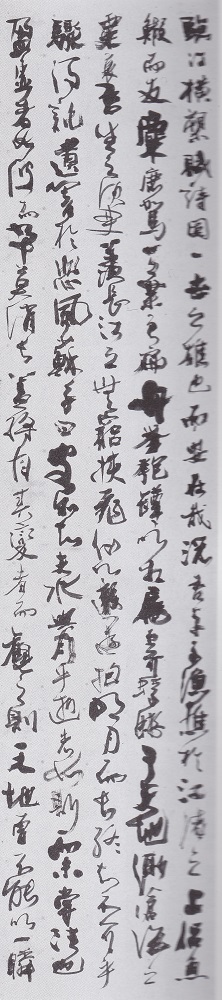 臨江橫槊賦詩固一世之雄也而今安在哉況吾與子漁樵於江渚之上侶魚
蝦而友麋鹿駕一葉之扁舟舉匏樽以相屬寄蜉蝣於天地渺滄海之
一粟哀吾生之須臾羨長江之無窮挾飛仙以遨遊抱明月而長終知不可乎
驟得託遺響於悲風蘇子曰客亦知夫水與月乎逝者如斯而未嘗往也
盈虛者如彼而卒莫消長蓋將自其變者而觀之則天地曾不能以一瞬